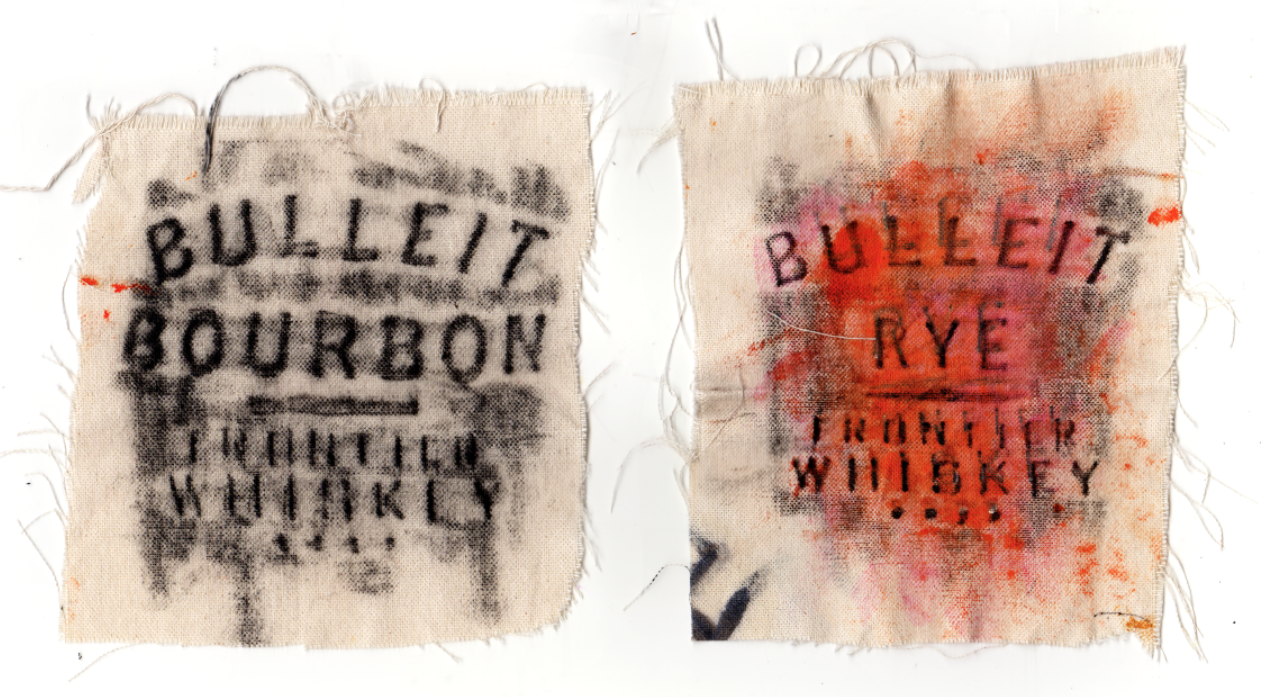 BULLEIT
BOURBON
FRONTIER
WHISKEY
BULLEIT
RYE
FRONTIER
WHISKEY